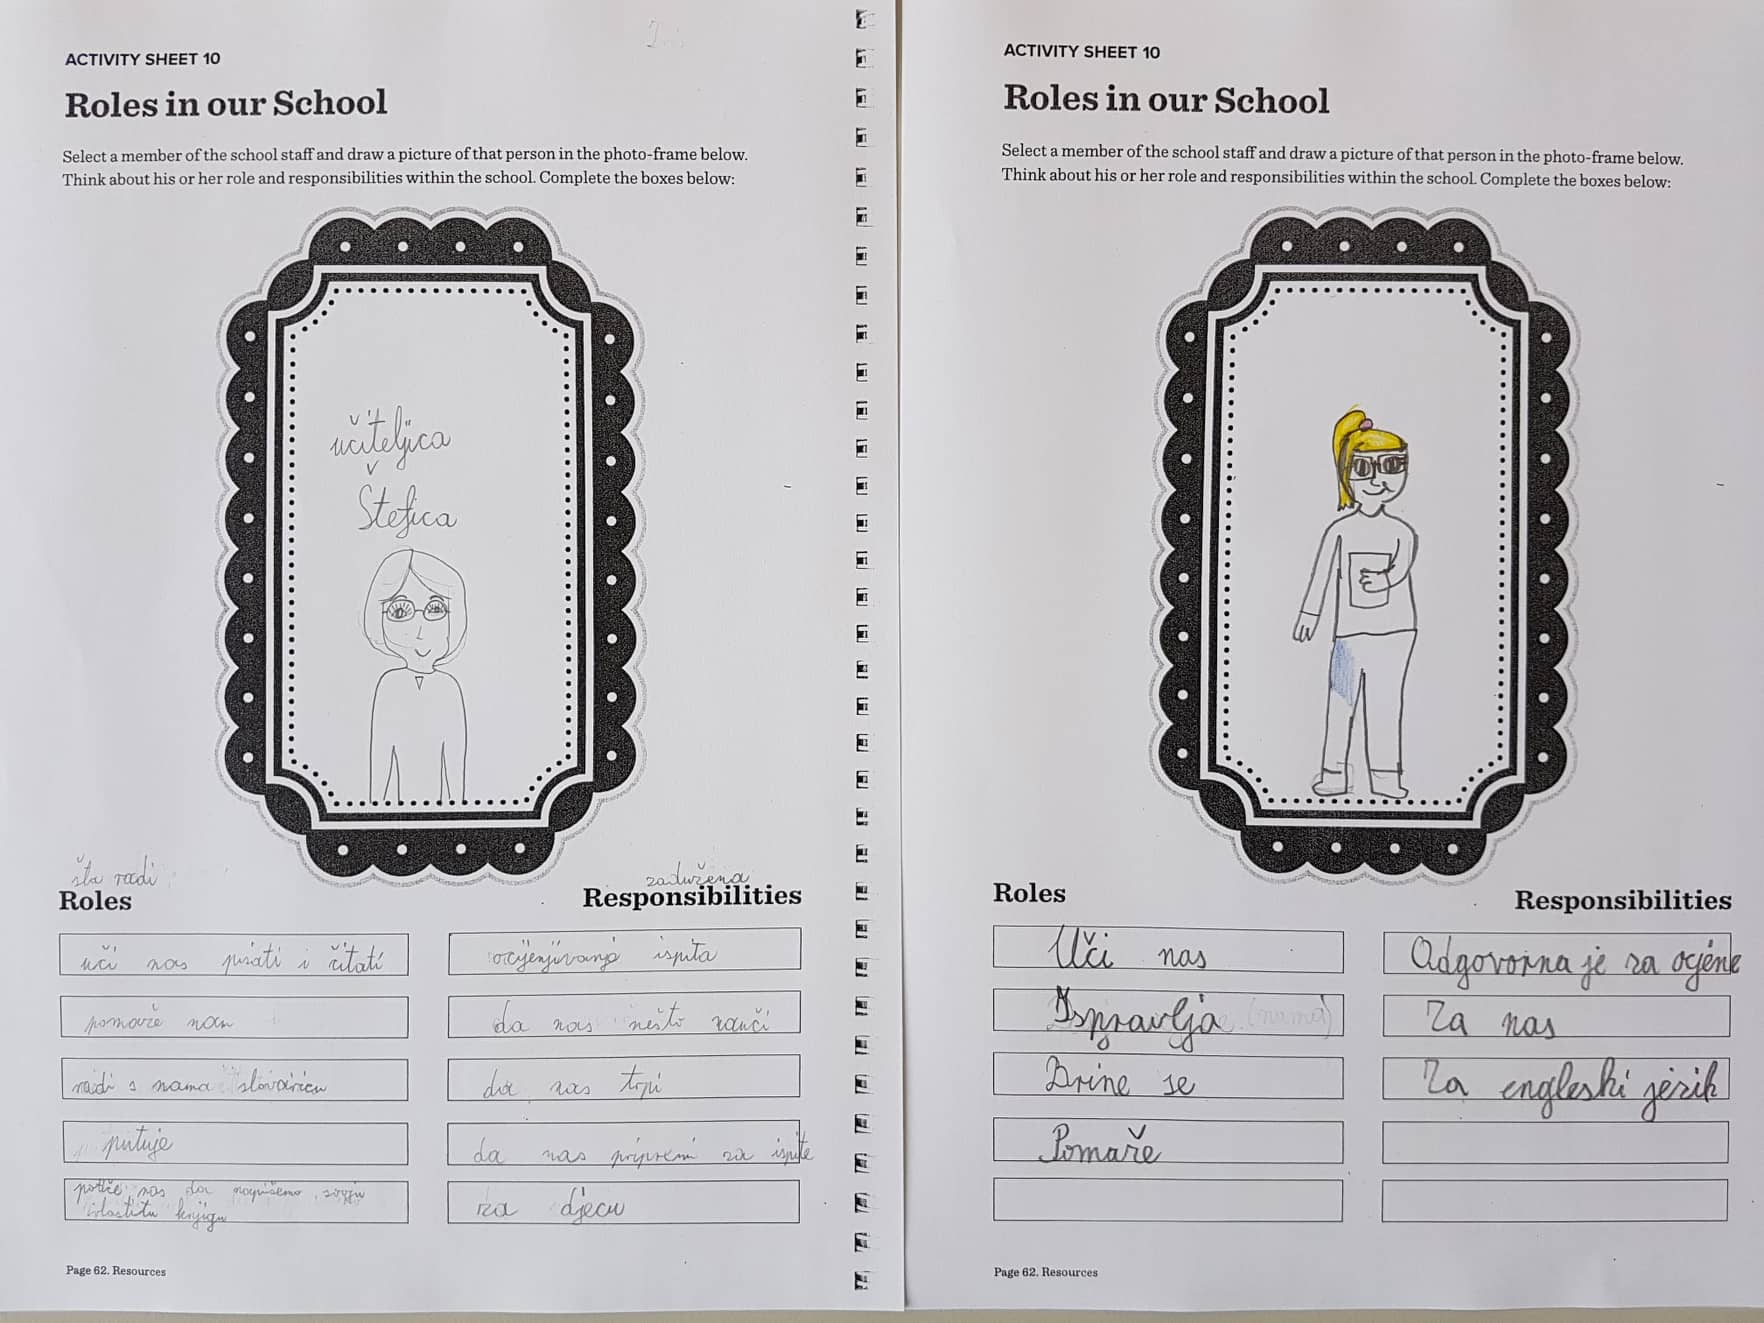 ACTIVITY SHEET 10
Roles in our School
Select a member of the school staff and draw a picture of that person in the photo-frame below.
Think about his or her role and responsibilities within the school. Complete the boxes below:
učiteljica
Štefica
šta radi
Roles
uči nas pisati i čitati
pomaže nam
radi s nama slovaricu
putuje
potiče nas da napišemo svoju
vlastitu knjigu
zadužena
Responsibilities
ocjenjivanja ispita
da nas nešto nauči
da nas trpi
da nas pripremi za ispite
za djecu
Page 62. Resources
ACTIVITY SHEET 10
Roles in our School
Select a member of the school staff and draw a picture of that person in the photo-frame below.
Think about his or her role and responsibilities within the school. Complete the boxes below:
Roles
Uči nas
Ispravlja (nama)
Brine se
Pomaže
Responsibilities
Odgovorna je za ocjene
Za nas
Za engleski jezik
Page 62. Resources